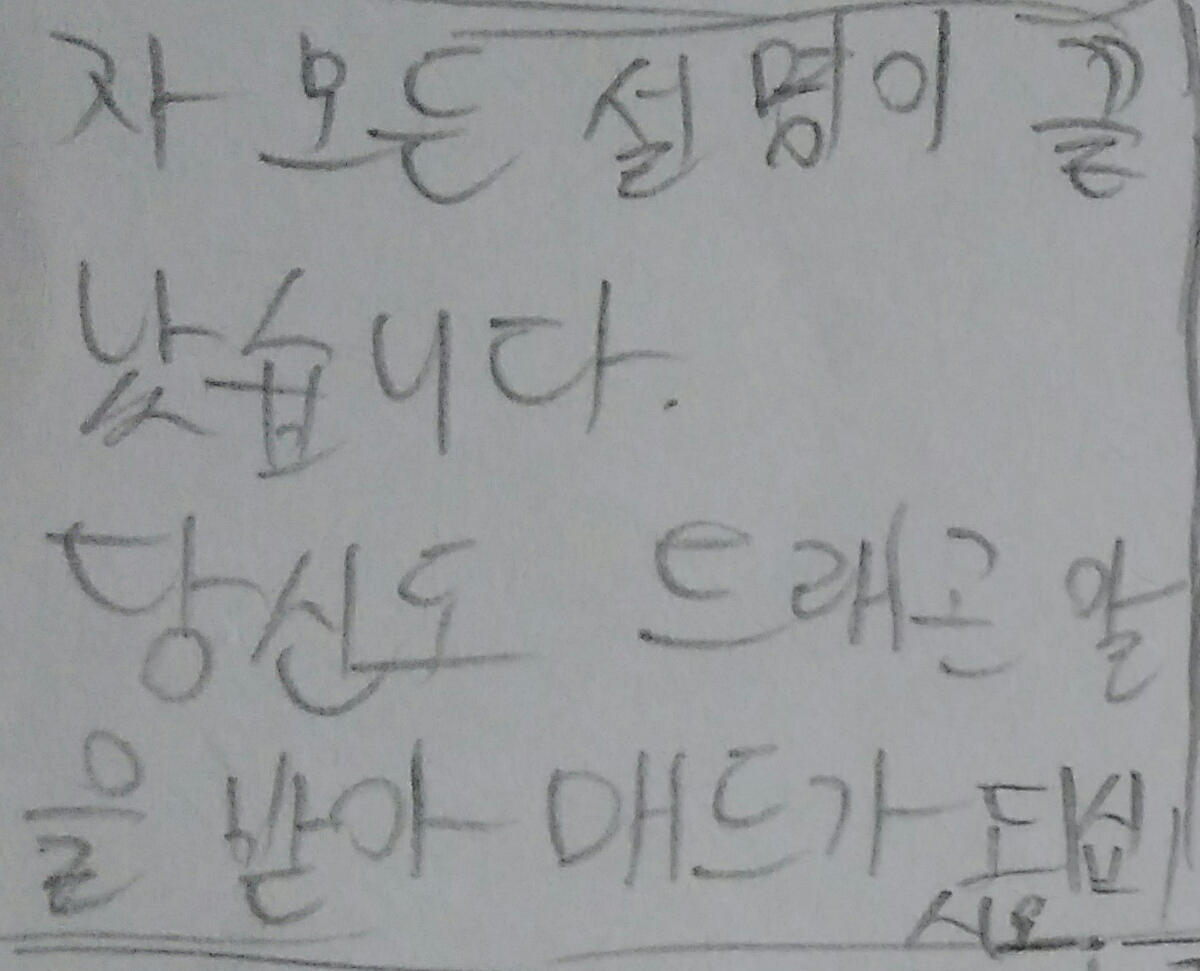 자 모든 설명이 끝
났습니다.
당신도 드래곤 알
을 받아 매드가 되십
시오.